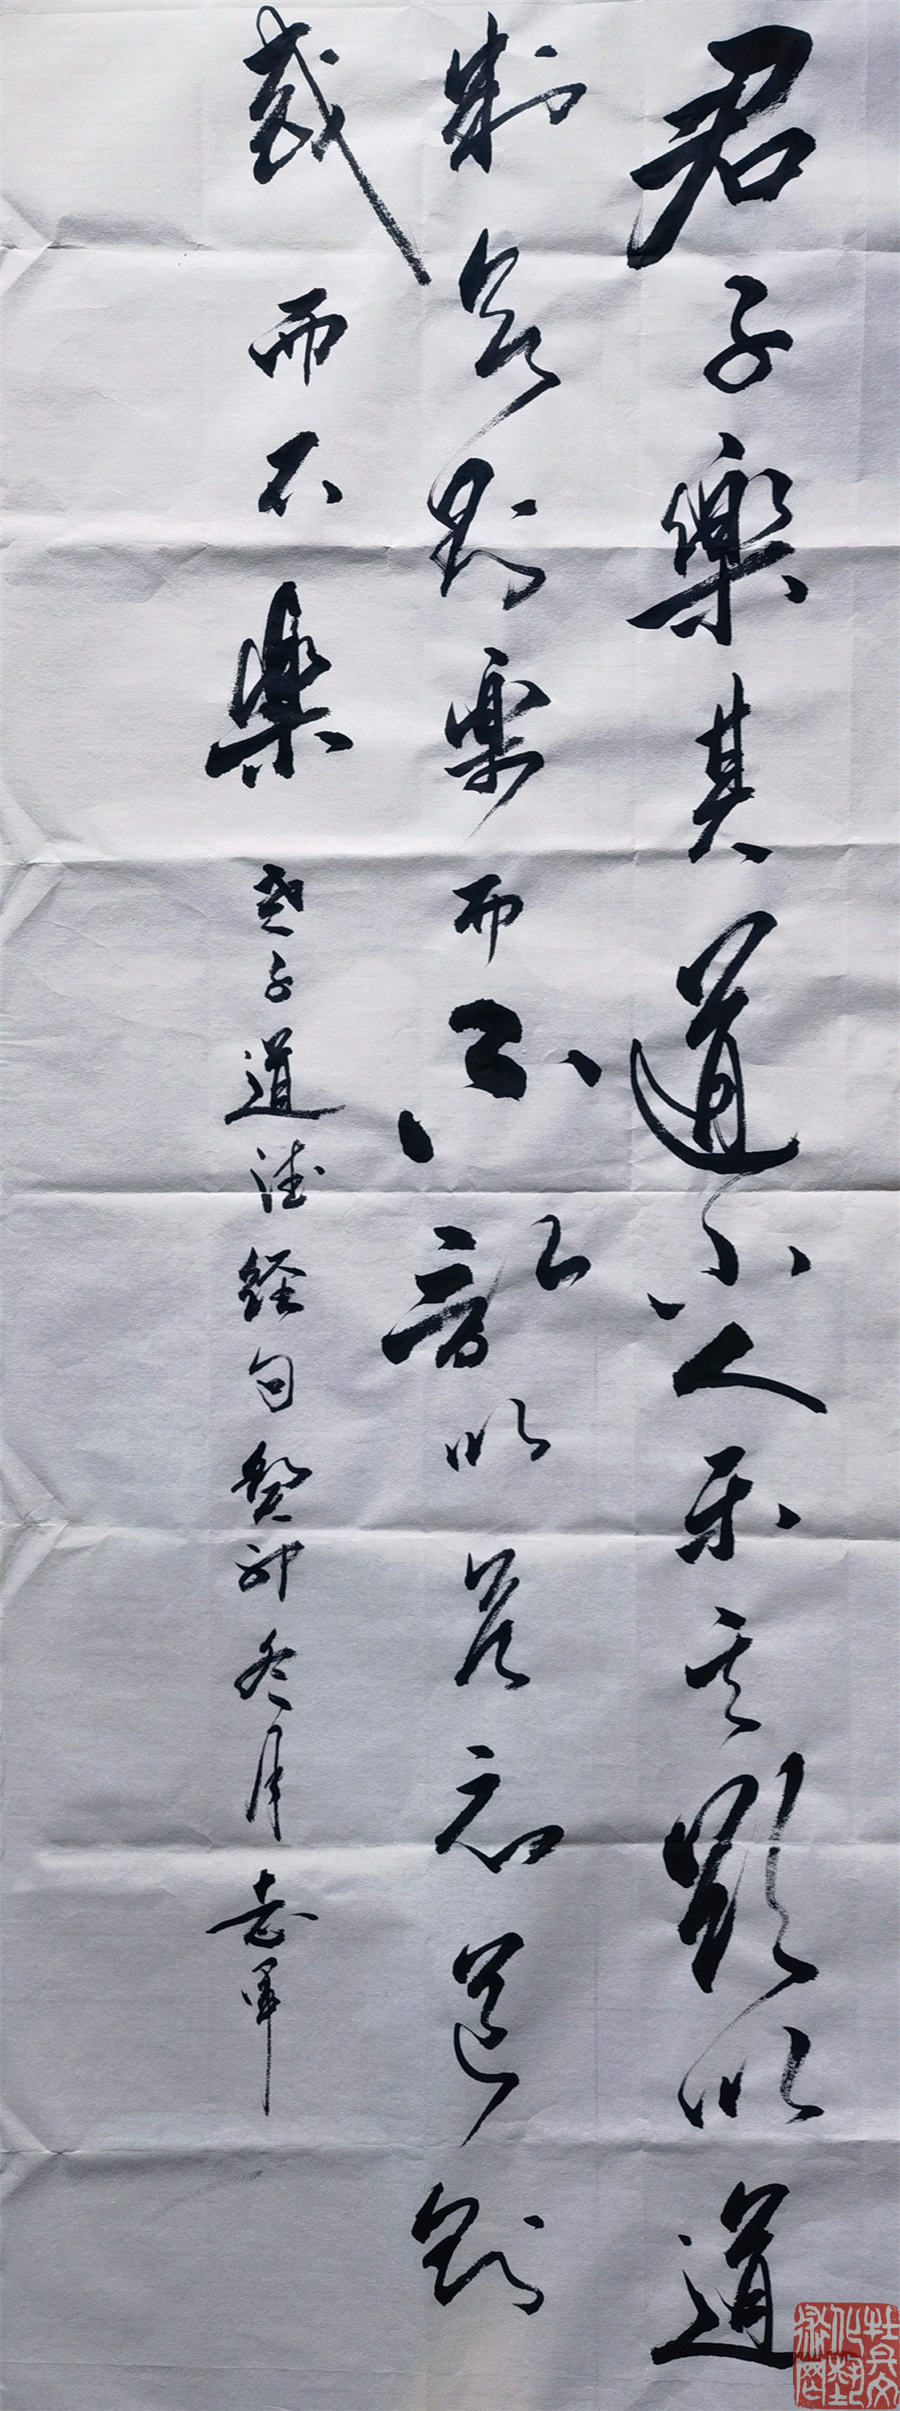 君子樂其道小人乐其欲以道
制欲則樂而不亂以欲忘道則
惑而不樂 老子道德经句 癸卯冬月 志軍